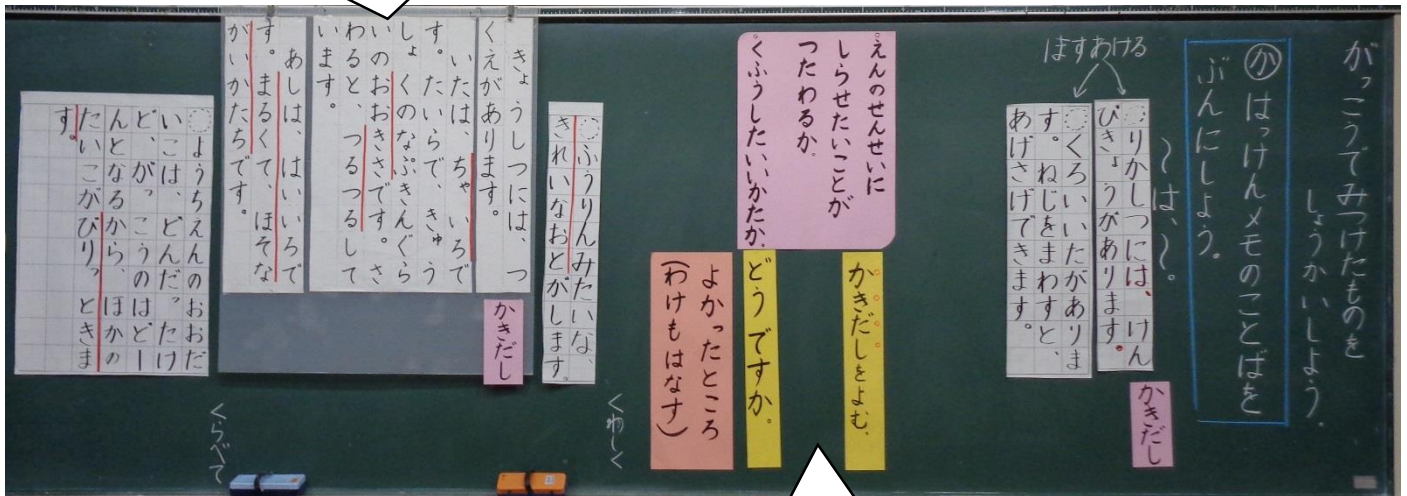 がっこうでみつけたものを
しょうかいしよう。
か はっけんメモのことばを
ぶんにしよう。
〜は、〜。
ますあける
りかしつには、けん
びきょうがあります。
くろいいたがありま
す。ねじをまわすと、
あげさげできます。
かきだし
えんのせんせいに
しらせたいことが
つたわるか。
くふうしたいいかたか。
かきだしをよむ。
どうですか。
よかったところ
(わけもはなす)
くわしく
ふうりんみたいな、
きれいなおとがします。
きょうしつには、つ
くえがあります。
いたは、ちゃいろで
す。たいらで、きゅう
しょくのなぷきんぐら
いのおおきさです。さ
わると、つるつるして
います。
あしは、はいいろで
す。まるくて、ほそな
がいかたちです。
かきだし
くらべて
ようちえんのおおだ
いこは、どんだったけ
ど、がっこうのはどー
んとなるから、ほかの
たいこがびりっときま
す。